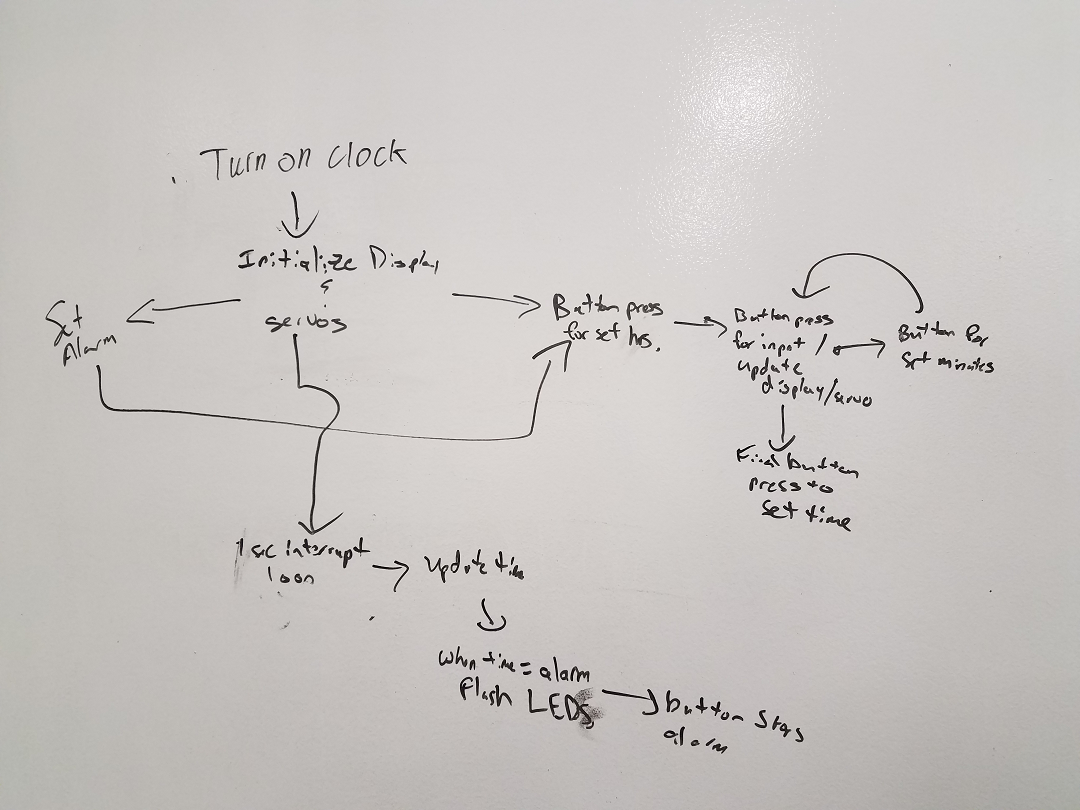 Turn on clock
Initialize Display
&
servos
Set
Alarm
Button press
for set hrs.
Button press
for input /
update
display/servo
Button for
set minutes
Final button
press to
set time
1 sec interrupt
loop
update time
when time = alarm
Flash LEDs
button stops
alarm